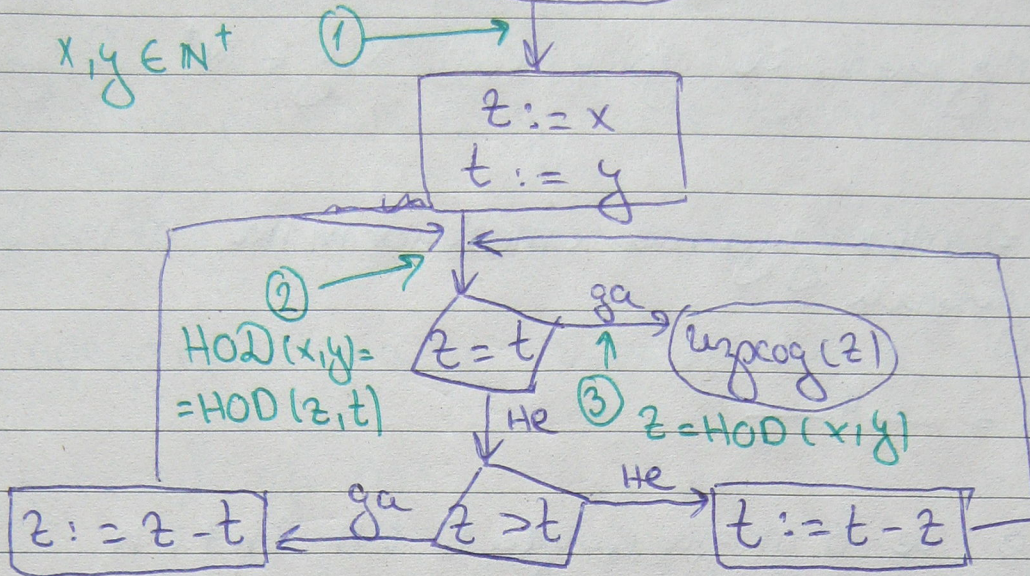 x, y ∈ ℕ⁺
①
z := x
t := y
②
НОД(x,y)=
=НОД(z,t)
z = t
да
изход(z)
не
③
z = НОД(x,y)
z > t
да
не
z := z - t
t := t - z